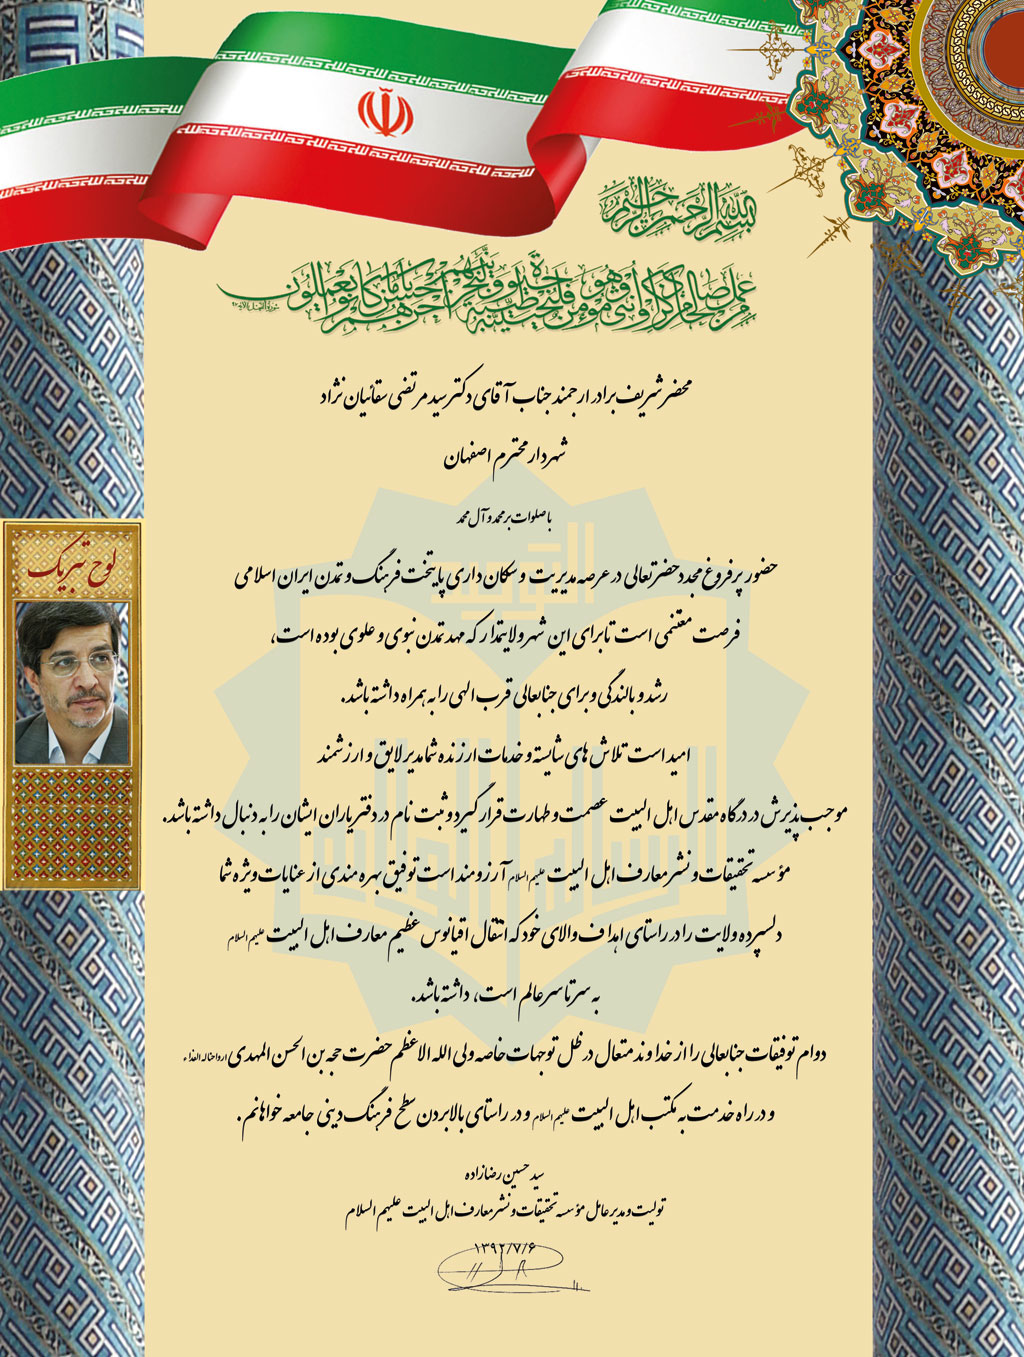 بسم الله الرحمن الرحیم
من عمل صالحا من ذکر او انثی و هو مومن فلنحیینه حیوة طیبة و لنجزینهم اجرهم باحسن ما کانوا یعملون
محضر شریف برادر ارجمند جناب آقای دکتر سید مرتضی سقائیان نژاد
شهردار محترم اصفهان
با صلوات بر محمد و آل محمد
حضور پر فروغ مجدد حضرتعالی در عرصه مدیریت و سکان داری پایتخت فرهنگ و تمدن ایران اسلامی
فرصت مغتنمی است تا برای این شهر ولایتمدار که مهد تمدن نبوی و علوی بوده است،
رشد و بالندگی و برای جنابعالی قرب الهی را به همراه داشته باشد.
لوح تبریک
امید است تلاش های شایسته و خدمات ارزنده شما مدیر لایق و ارزشمند
موجب پذیرش در درگاه مقدس اهل البیت عصمت و طهارت قرار گیرد و ثبت نام در دفتر یاران ایشان را به دنبال داشته باشد.
مؤسسه تحقیقات و نشر معارف اهل البیت علیهم السلام آرزومند است توفیق بهره مندی از عنایات ویژه شما
دلسپرده ولایت را در راستای اهداف والای خود که انتقال اقیانوس عظیم معارف اهل البیت علیهم السلام
به سرتاسر عالم است، داشته باشد.
دوام توفیقات جنابعالی را از خداوند متعال در ظل توجهات خاصه ولی الله الاعظم حضرت حجه بن الحسن المهدی ارواحنا له الفداء
و در راه خدمت به مکتب اهل البیت علیهم السلام و در راستای بالا بردن سطح فرهنگ دینی جامعه خواهانم.
سید حسین رضازاده
تولیت و مدیر عامل مؤسسه تحقیقات و نشر معارف اهل البیت علیهم السلام
۱۳۹۲/۷/۶